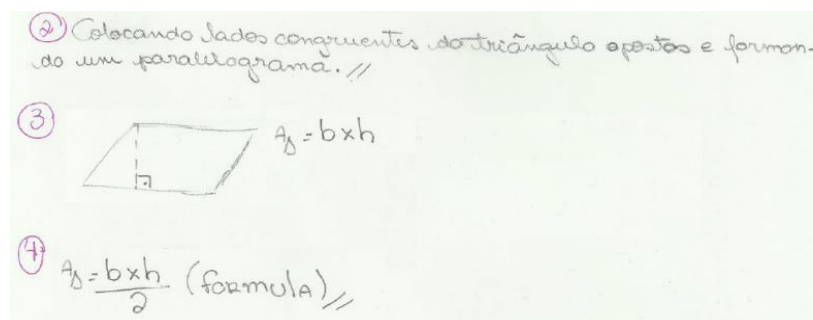 ② Colocando lados congruentes do triângulo opostos e forman-
do um paralelograma. //
③
A△ = b×h
④
A△ = b×h / 2 (formula) //